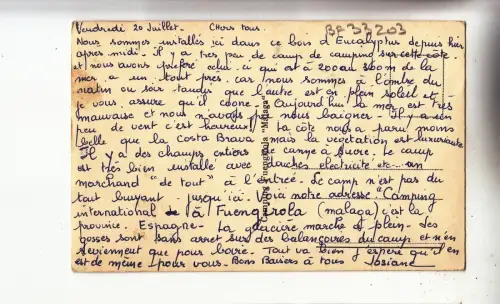 Vendredi 20 Juillet. Chers tous.
BF 33203
Nous sommes installés ici dans ce bois d'Eucalyptus depuis hier
après midi. Il y a très peu de camp de camping sur cette côte
et nous avons préféré celui ci qui est à 200 ou 300m de la
mer a un tout près. car nous sommes à l'ombre du
matin au soir tandis que l'autre est en plein soleil et
je vous assure qu'il cogne. Aujourd'hui la mer est très
mauvaise et nous n'avons pu nous baigner. Il y a un
peu de vent c'est heureux! La côte nous a paru moins
belle que la Costa Brava mais la végétation est luxuriante
Il y a des champs entiers de canne à sucre. Le camp
est très bien installé avec douches électricité etc... un
marchand "de tout" à l'entrée. Le camp n'est pas du
tout bruyant jusqu'ici. Voici notre adresse "Camping
international de la Fuengirola (malaga) c'est la
province. Espagne. La glacière marche à plein. Les
gosses sont sans arrêt sur des balançoires du camp et n'en
reviennent que pour boire. Tout va bien j'espère qu'il en
est de même pour vous. Bons Baisers à tous Josiane